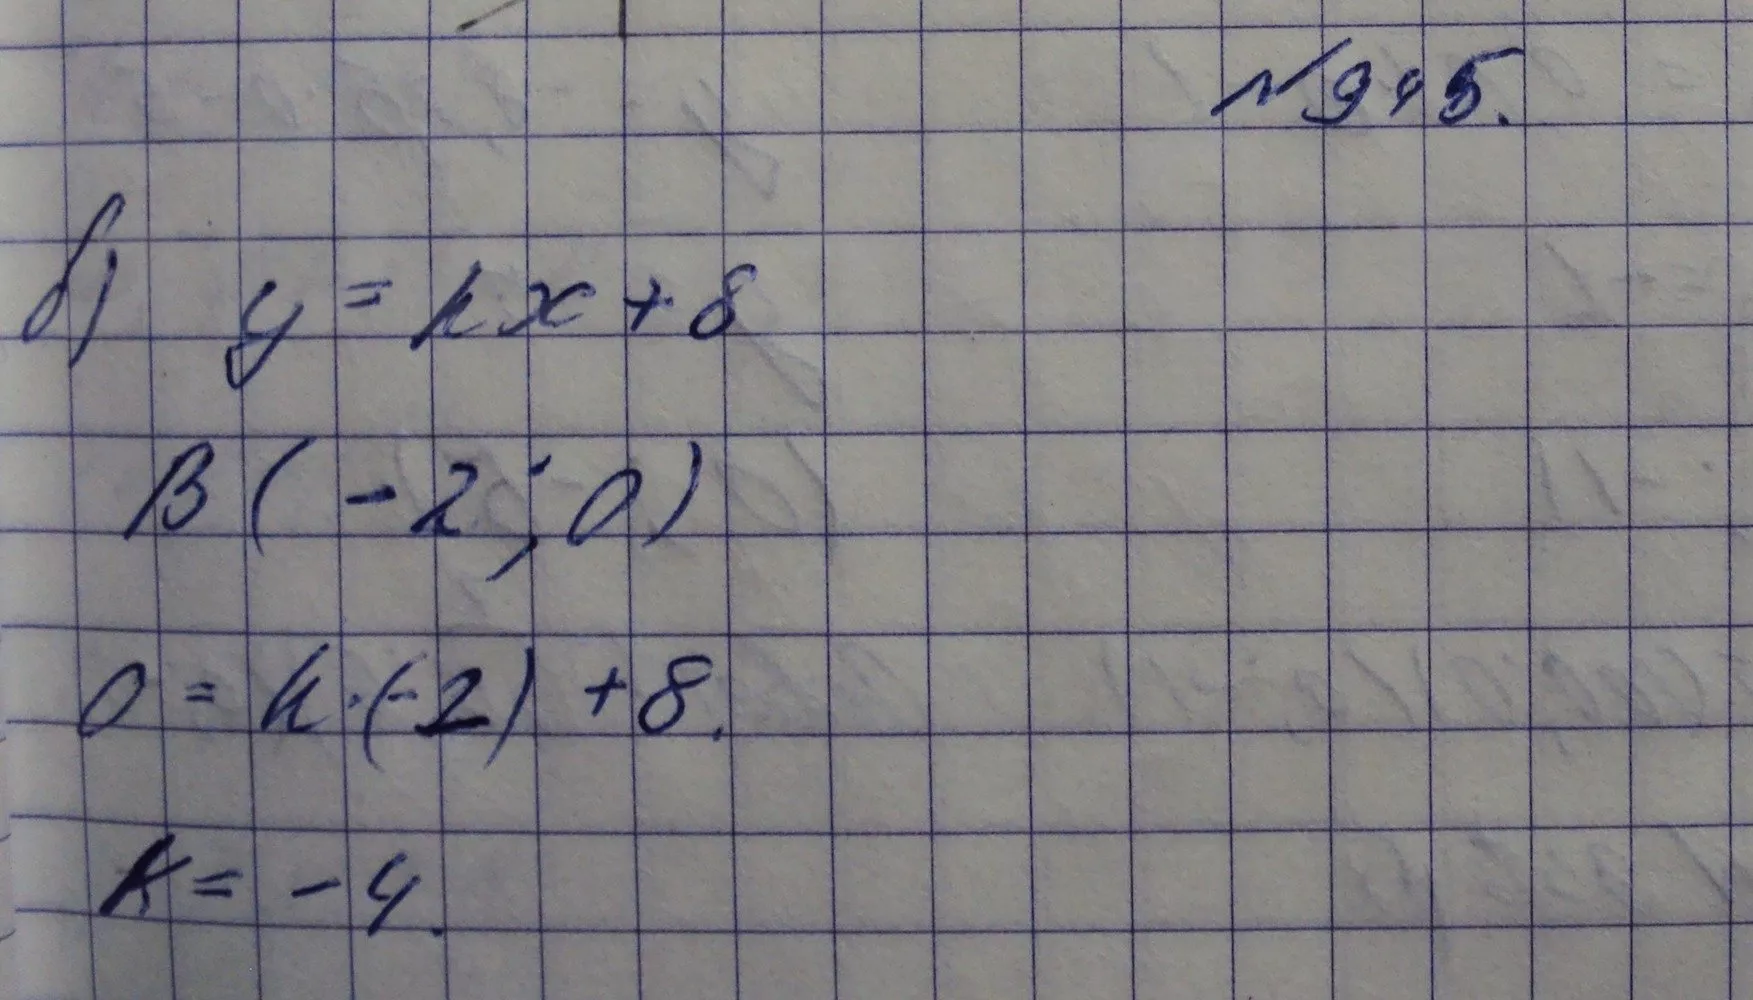 №945.
б) y = kx + 8
B (-2; 0)
0 = k·(-2) + 8.
k = -4.